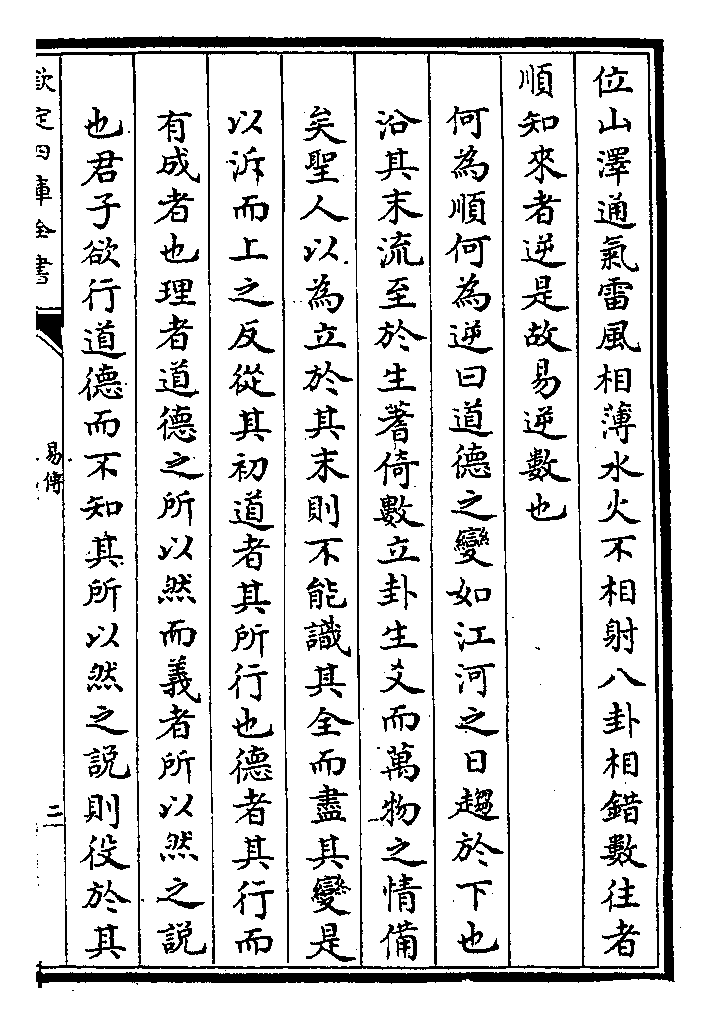 位山澤通氣雷風相薄水火不相射八卦相錯數往者
順知來者逆是故易逆數也
何為順何為逆曰道德之變如江河之日趨於下也
沿其末流至於生蓍倚數立卦生爻而萬物之情備
矣聖人以為立於其末則不能識其全而盡其變是
以泝而上之反從其初道者其所行也德者其行而
有成者也理者道德之所以然而義者所以然之說
也君子欲行道德而不知其所以然之說則役於其
欽定四庫全書
易傳
二